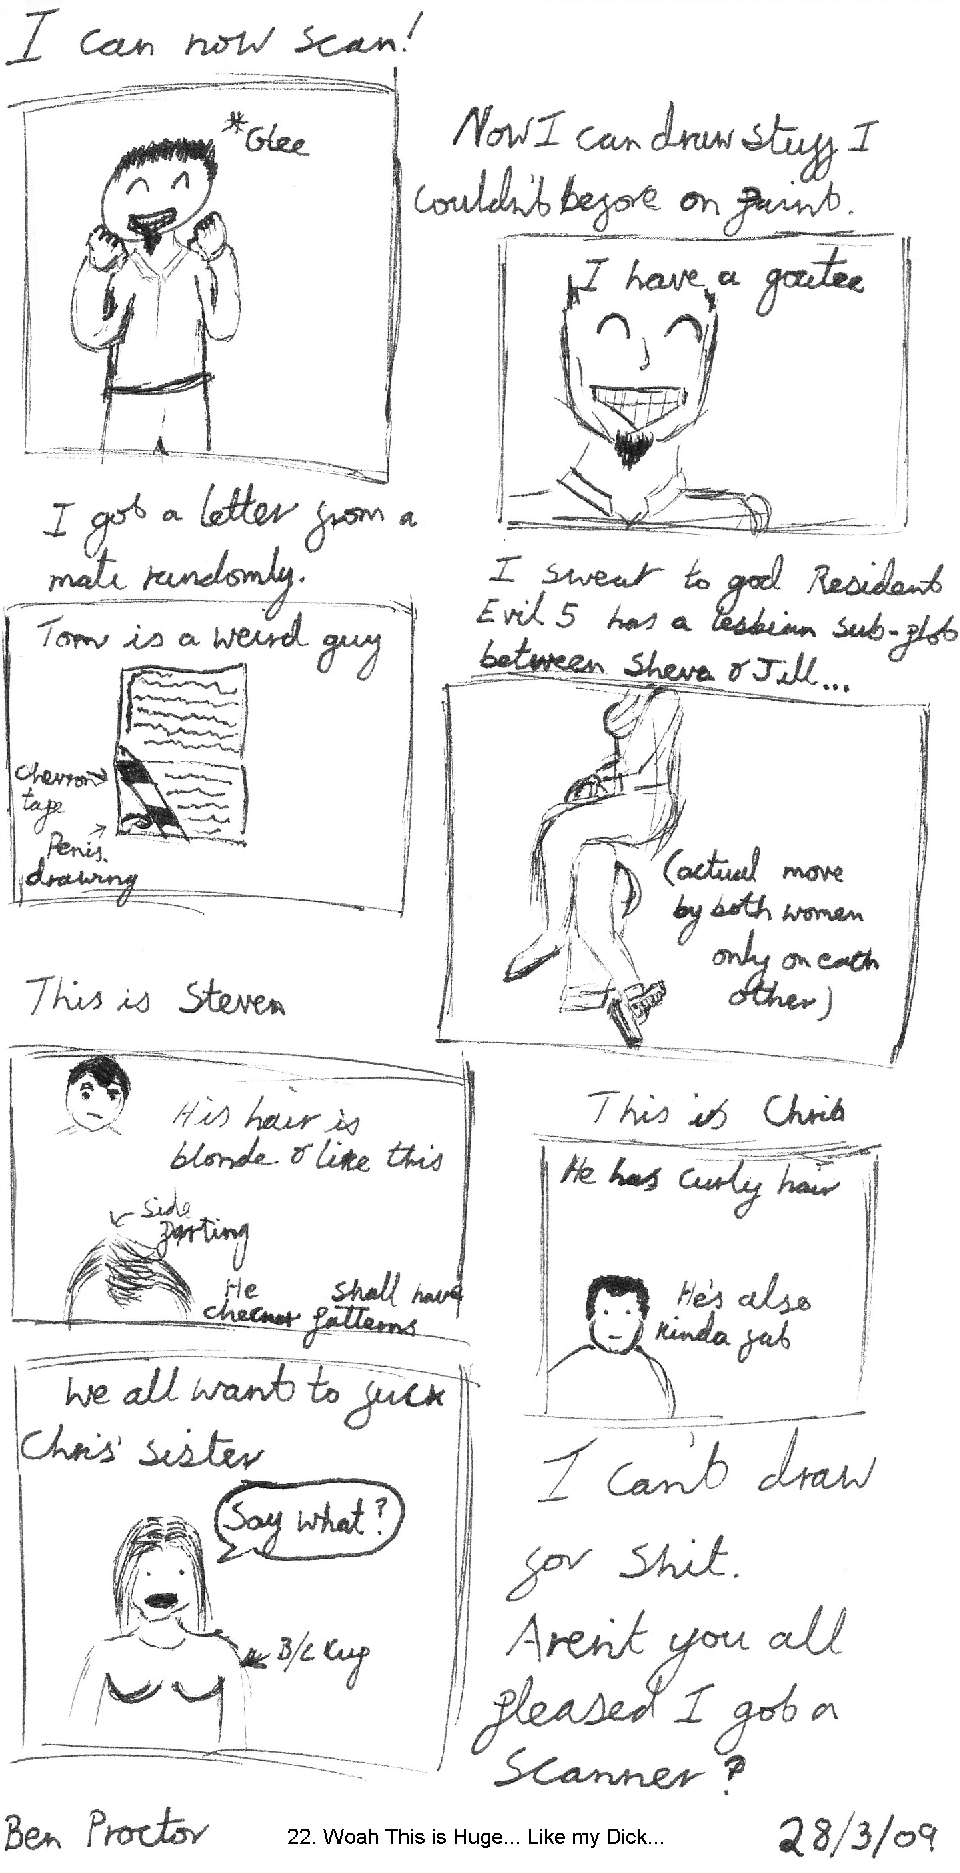 I can now scan!
*Glee
Now I can draw stuff I
couldn't before on paint.
I have a goatee
I got a letter from a
mate randomly.
Tom is a weird guy
Chevron
tape
Penis
drawing
I swear to god Resident
Evil 5 has a lesbian sub-plot
between Sheva & Jill...
(actual move
by both women
only on each
other)
This is Steven
His hair is
blonde & like this
side
parting
He shall have
checker patterns
This is Chris
He has curly hair
He's also
kinda fat
We all want to fuck
Chris' sister
Say what?
B/C cup
I can't draw
for shit.
Aren't you all
pleased I got a
scanner?
Ben Proctor
22. Woah This is Huge... Like my Dick...
28/3/09